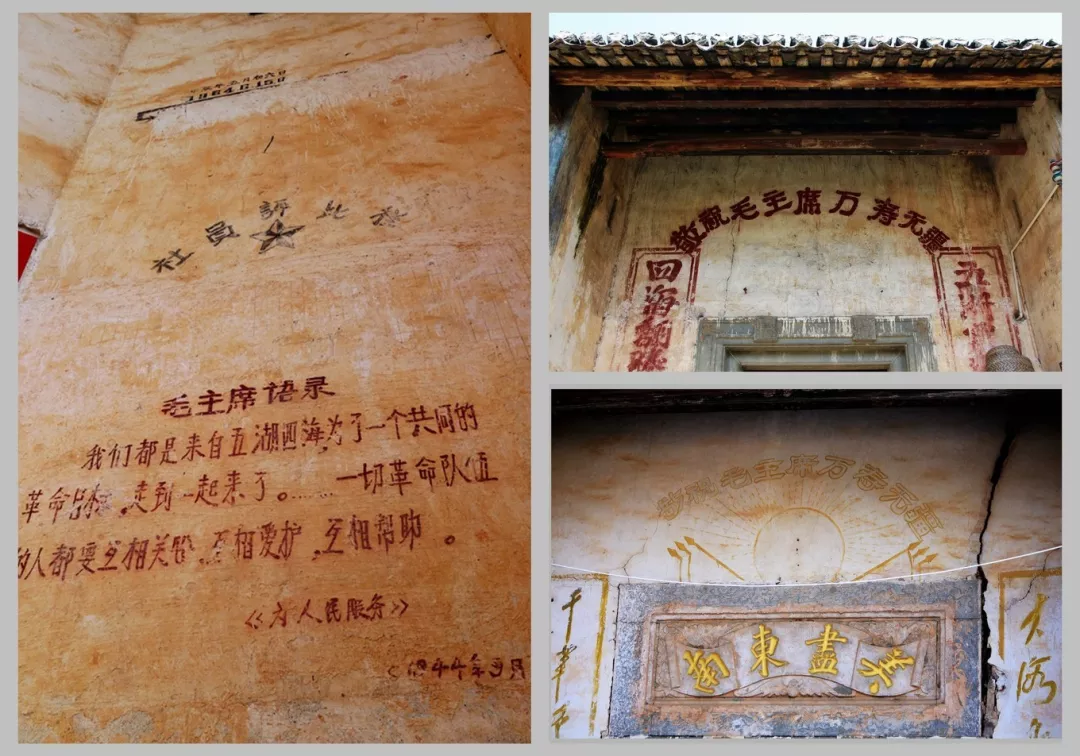 1964.6.15
社員評比
毛主席语录
我们都是来自五湖四海,为了一个共同的
革命目标,走到一起来了。……一切革命队伍
的人都要互相关心,互相爱护,互相帮助。
《为人民服务》
敬祝毛主席万寿无疆
四海翻腾
五洲
敬祝毛主席万寿无疆
美盡東南
大海
干革